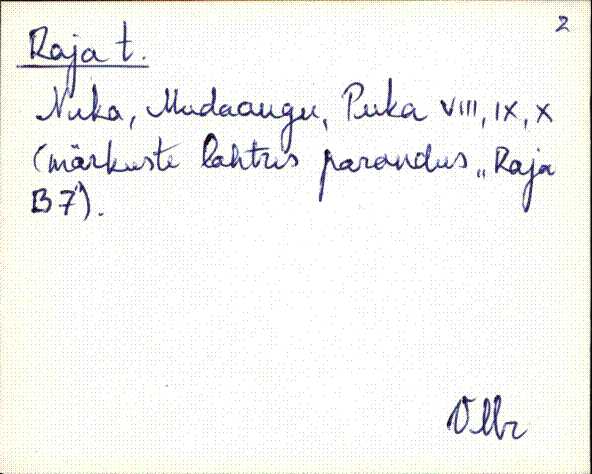 2
Raja t.
Nuka, Mudaaugu, Puka VIII, IX, X
(märkuste lahtris parandus „Raja
B7").